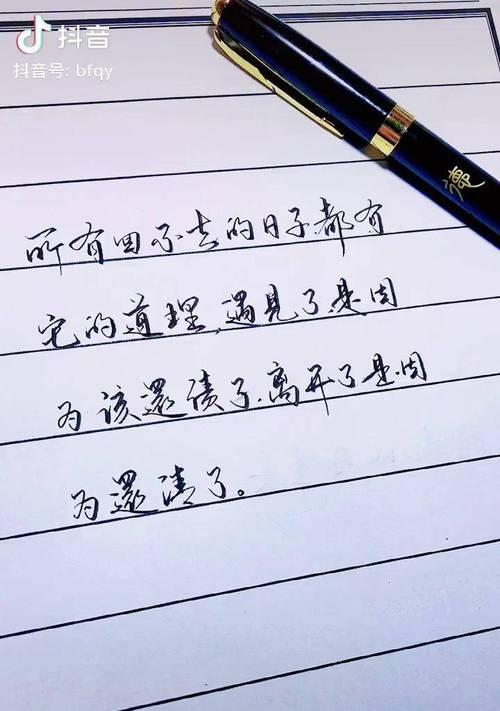 抖音
抖音号: bfqy
德
所有回不去的日子都有
它的道理,遇见了是因
为该還债了.离开了是因
为還清了。